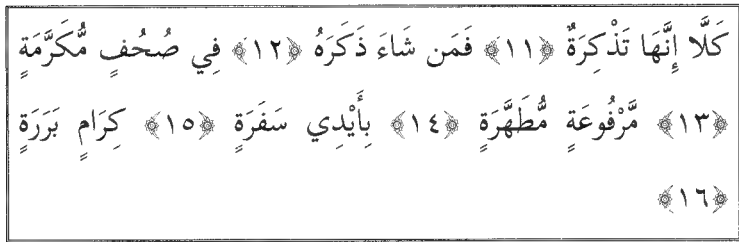 كَلَّا إِنَّهَا تَذْكِرَةٌ ﴿١١﴾ فَمَن شَاءَ ذَكَرَهُ ﴿١٢﴾ فِي صُحُفٍ مُّكَرَّمَةٍ
﴿١٣﴾ مَّرْفُوعَةٍ مُّطَهَّرَةٍ ﴿١٤﴾ بِأَيْدِي سَفَرَةٍ ﴿١٥﴾ كِرَامٍ بَرَرَةٍ
﴿١٦﴾